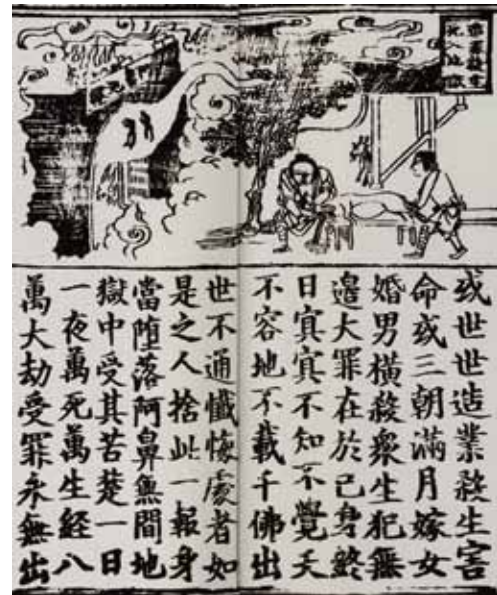 或世世造業殺生害
命或三朝滿月嫁女
婚男橫殺衆生犯無
邉大罪在於己身終
日㝠㝠不知不覺天
不容地不載千佛出
世不通懺悔處者如
是之人捨此一報身
當堕落阿鼻無間地
獄中受其苦楚一日
一夜萬死萬生経八
萬大劫受罪永無出